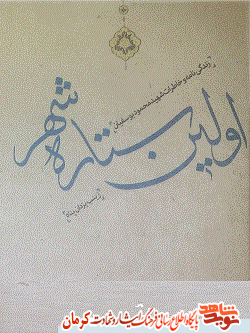 زندگی نامه و خاطرات شهید محمود یوسفیان
اولین ستاره شهر
نوید شاهد
پایگاه اطلاع رسانی فرهنگ ایثار و شهادت کرمان